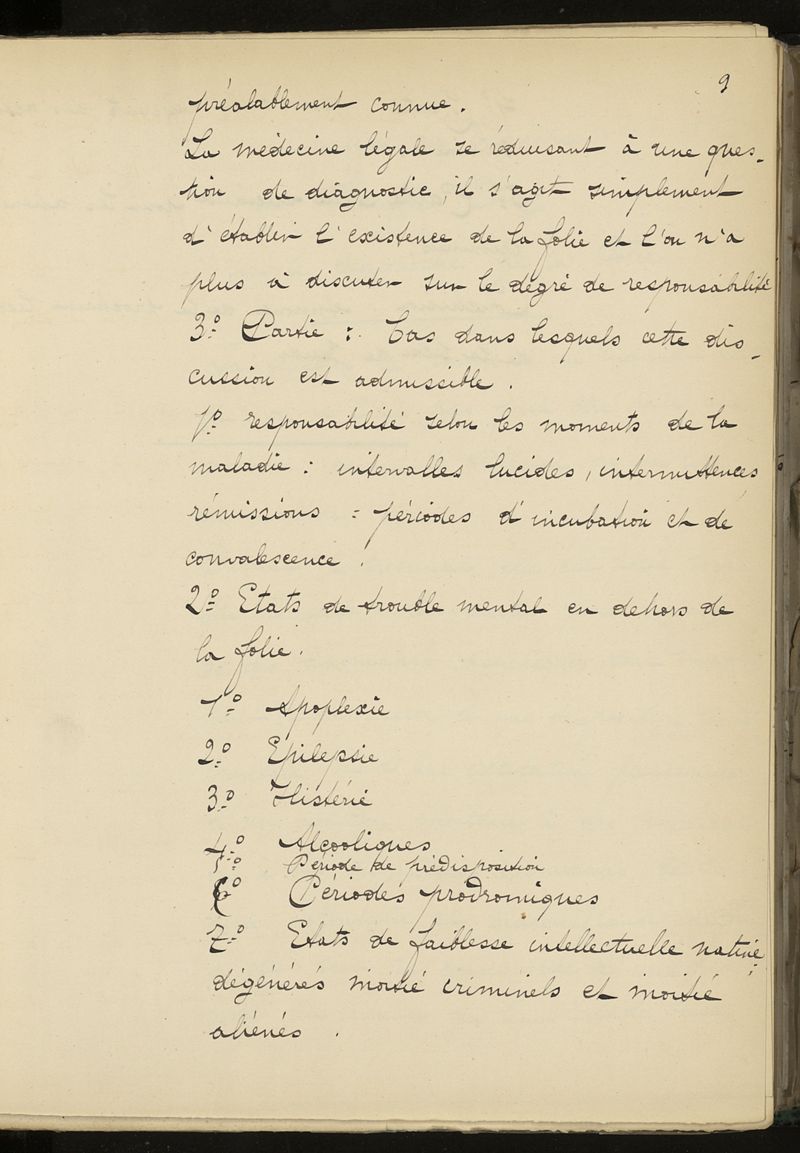 9
préalablement connue.
La médecine légale se réduisant à une ques-
tion de diagnostic, il s'agit simplement
d'établir l'existence de la folie et l'on n'a
plus à discuter sur le degré de responsabilité
3º Partie : Cas dans lesquels cette dis-
cussion est admissible.
1º responsabilité selon les moments de la
maladie : intervalles lucides, intermittences
rémissions = périodes d'incubation et de
convalescence.
2º Etats de trouble mental en dehors de
la folie.
1º Apoplexie
2º Epilepsie
3º Histérie
4º Alcooliques
5º Période de prédisposition
6º Périodes prodromiques
7º Etats de faiblesse intellectuelle native,
dégénérés moitié criminels et moitié
aliénés.